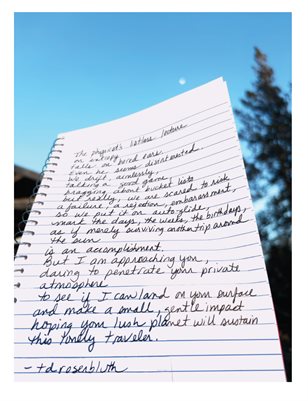 The physicist's listless lecture
on entropy
falls on bored ears.
Even he seems disinterested.
We drift, aimlessly,
talking a good game
bragging about bucket lists
but really, we are scared to risk
a failure, a rejection, embarrassment,
so we put it on auto-glide,
mark the days, the weeks, the birthdays,
as if merely surviving another trip around
the sun
is an accomplishment.
But I am approaching you,
daring to penetrate your private
atmosphere
to see if I can land on your surface
and make a small, gentle impact
hoping your lush planet will sustain
this lonely traveler.
- tdrosenbluth